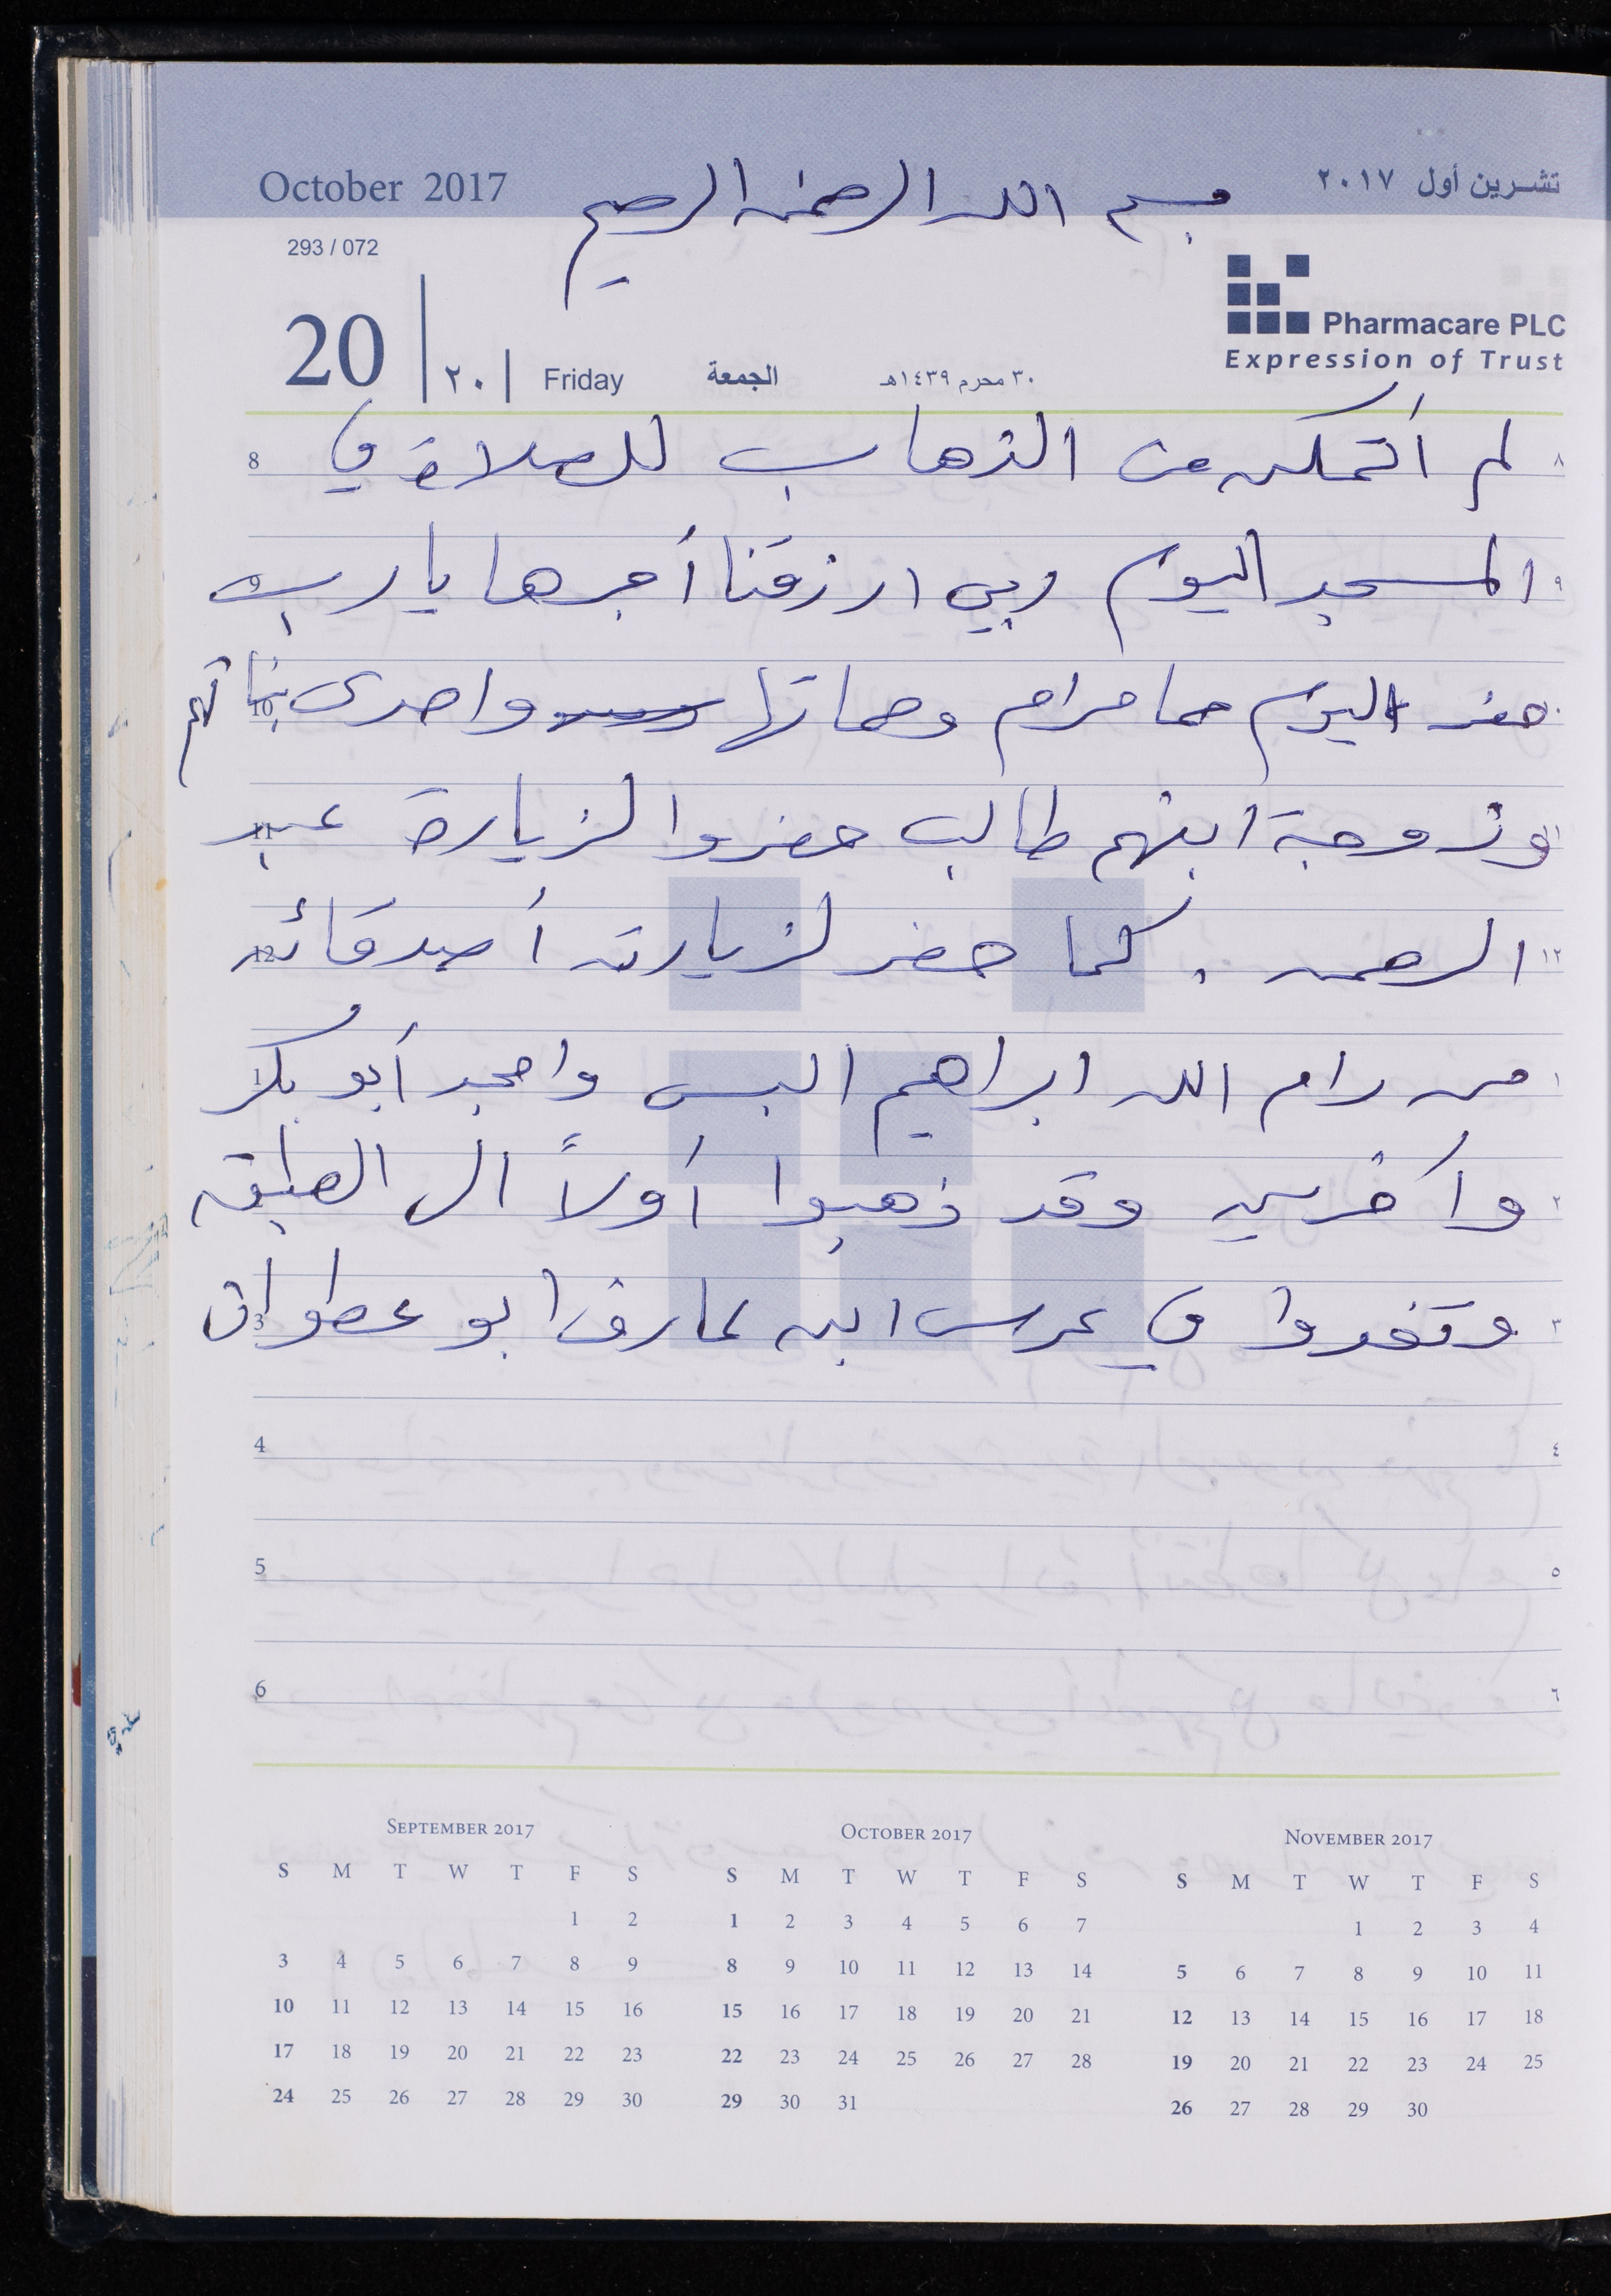 October 2017
بسم الله الرحمن الرحيم
تشرين أول ٢٠١٧
293 / 072
Pharmacare PLC
Expression of Trust
20 ٢٠ Friday الجمعة ٣٠ محرم ١٤٣٩هـ
8 لم أتمكن من الذهاب للصلاة في ٨
9 المسجد اليوم ربي ارزقنا أجرها يا رب ٩
10 حضر اليوم حما مرام وحماتها واحدى بناتهم ١٠
11 وزوجة ابنهم طالب حضروا لزيارة عبد ١١
12 الرحمن . كما حضر لزيارته أصدقائه ١٢
1 من رام الله ابراهيم البس وامجد أبو بكر ١
وآخرين وقد ذهبوا أولاً الى الطبقة ٢
3 وتغدوا في عرس ابن عارف ابو عطوان ٣
4 ٤
5 ٥
6 ٦
September 2017
S M T W T F S
1 2
3 4 5 6 7 8 9
10 11 12 13 14 15 16
17 18 19 20 21 22 23
24 25 26 27 28 29 30
October 2017
S M T W T F S
1 2 3 4 5 6 7
8 9 10 11 12 13 14
15 16 17 18 19 20 21
22 23 24 25 26 27 28
29 30 31
November 2017
S M T W T F S
1 2 3 4
5 6 7 8 9 10 11
12 13 14 15 16 17 18
19 20 21 22 23 24 25
26 27 28 29 30